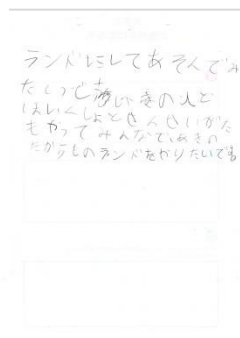 ランドにしてあそんでみ
たいっです
の人と
ほいんしょとせんせいがた
もやってみんなであきの
たからものランドをやりたいです